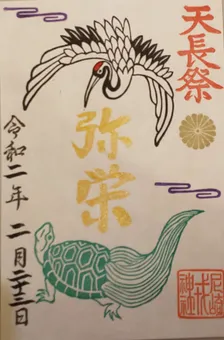 天長祭
弥栄
令和二年 二月二十三日
尼崎
戎
神